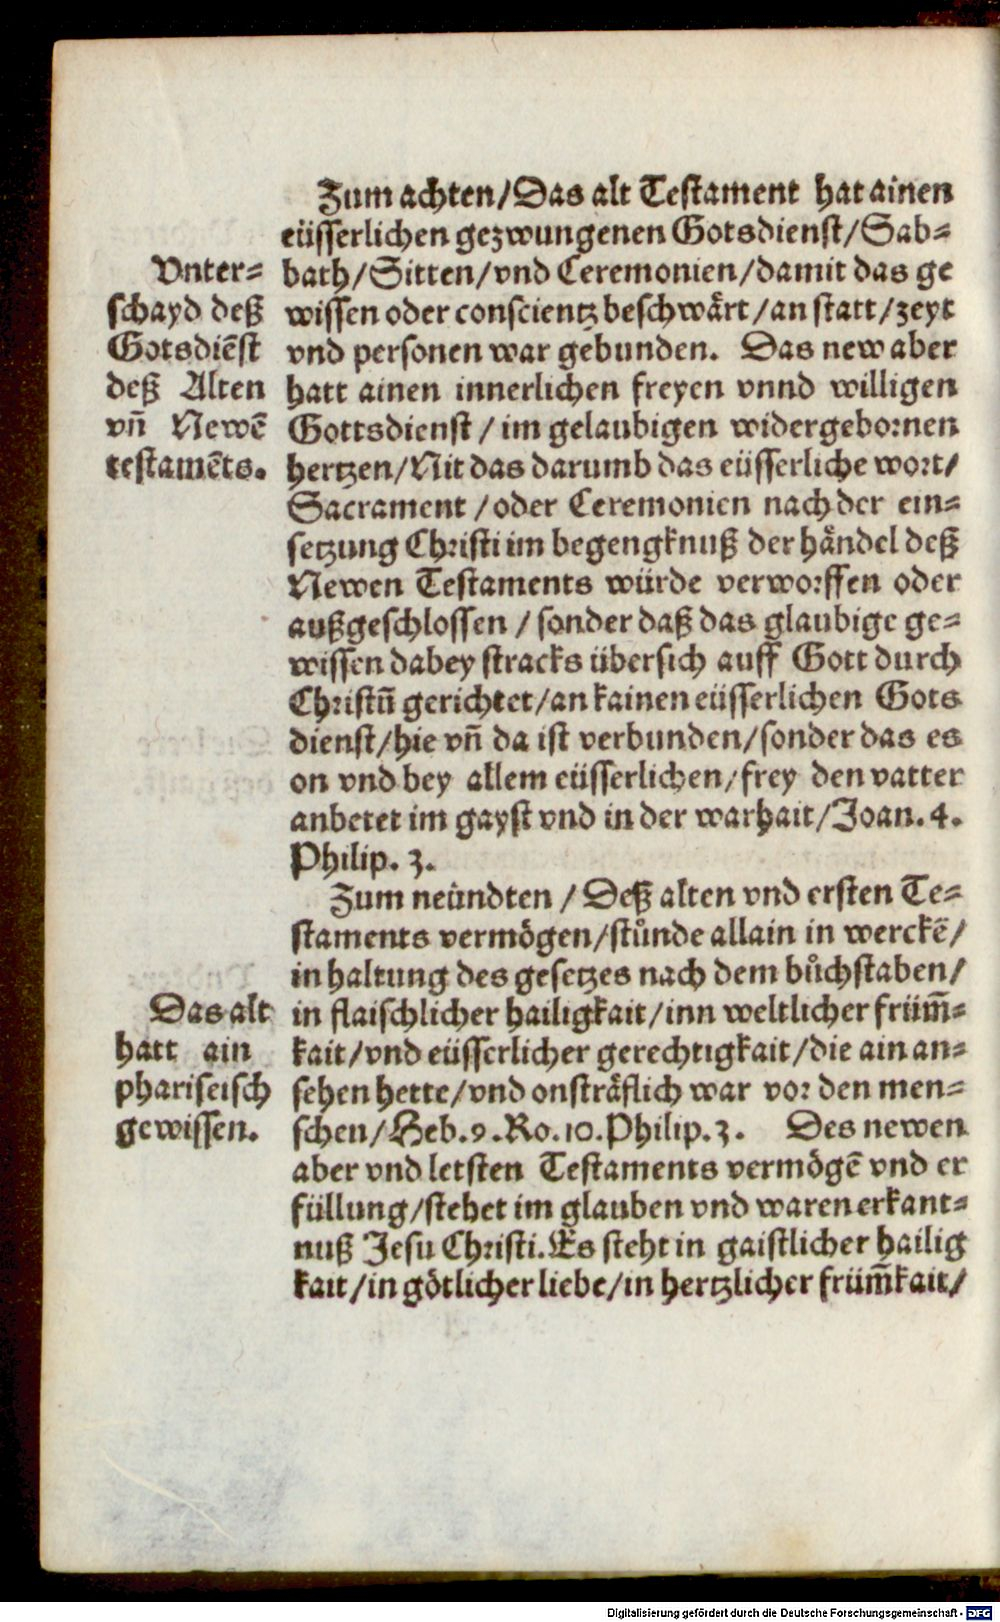 Zum achten/Das alt Testament hat ainen
eüsserlichen gezwungenen Gotsdienst/Sab-
bath/Sitten/vnd Ceremonien/damit das ge
wissen oder conscientz beschwärt/an statt/zeyt
vnd personen war gebunden. Das new aber
hatt ainen innerlichen freyen vnnd willigen
Gottsdienst/im gelaubigen widergebornen
hertzen/Nit das darumb das eüsserliche wort/
Sacrament/oder Ceremonien nach der ein-
setzung Christi im begengknuß der händel deß
Newen Testaments würde verworffen oder
außgeschlossen/sonder daß das glaubige ge-
wissen dabey stracks übersich auff Gott durch
Christū gerichtet/an kainen eüsserlichen Gots
dienst/hie vn̄ da ist verbunden/sonder das es
on vnd bey allem eüsserlichen/frey den vatter
anbetet im gayst vnd in der warhait/Joan. 4.
Philip. 3.
Vnter-
schayd deß
Gotsdiēst
deß Alten
vn̄ Newē
testamēts.
Zum neündten/Deß alten vnd ersten Te-
staments vermögen/stůnde allain in werckē/
in haltung des gesetzes nach dem bůchstaben/
in flaischlicher hailigkait/inn weltlicher früm̄-
kait/vnd eüsserlicher gerechtigkait/die ain an-
sehen hette/vnd onsträflich war vor den men-
schen/Heb. 9. Ro. 10. Philip. 3. Des newen
aber vnd letsten Testaments vermögē vnd er
füllung/stehet im glauben vnd waren erkant-
nuß Jesu Christi. Es steht in gaistlicher hailig
kait/in götlicher liebe/in hertzlicher früm̄kait/
Das alt
hatt ain
phariseisch
gewissen.
Digitalisierung gefördert durch die Deutsche Forschungsgemeinschaft - DFG